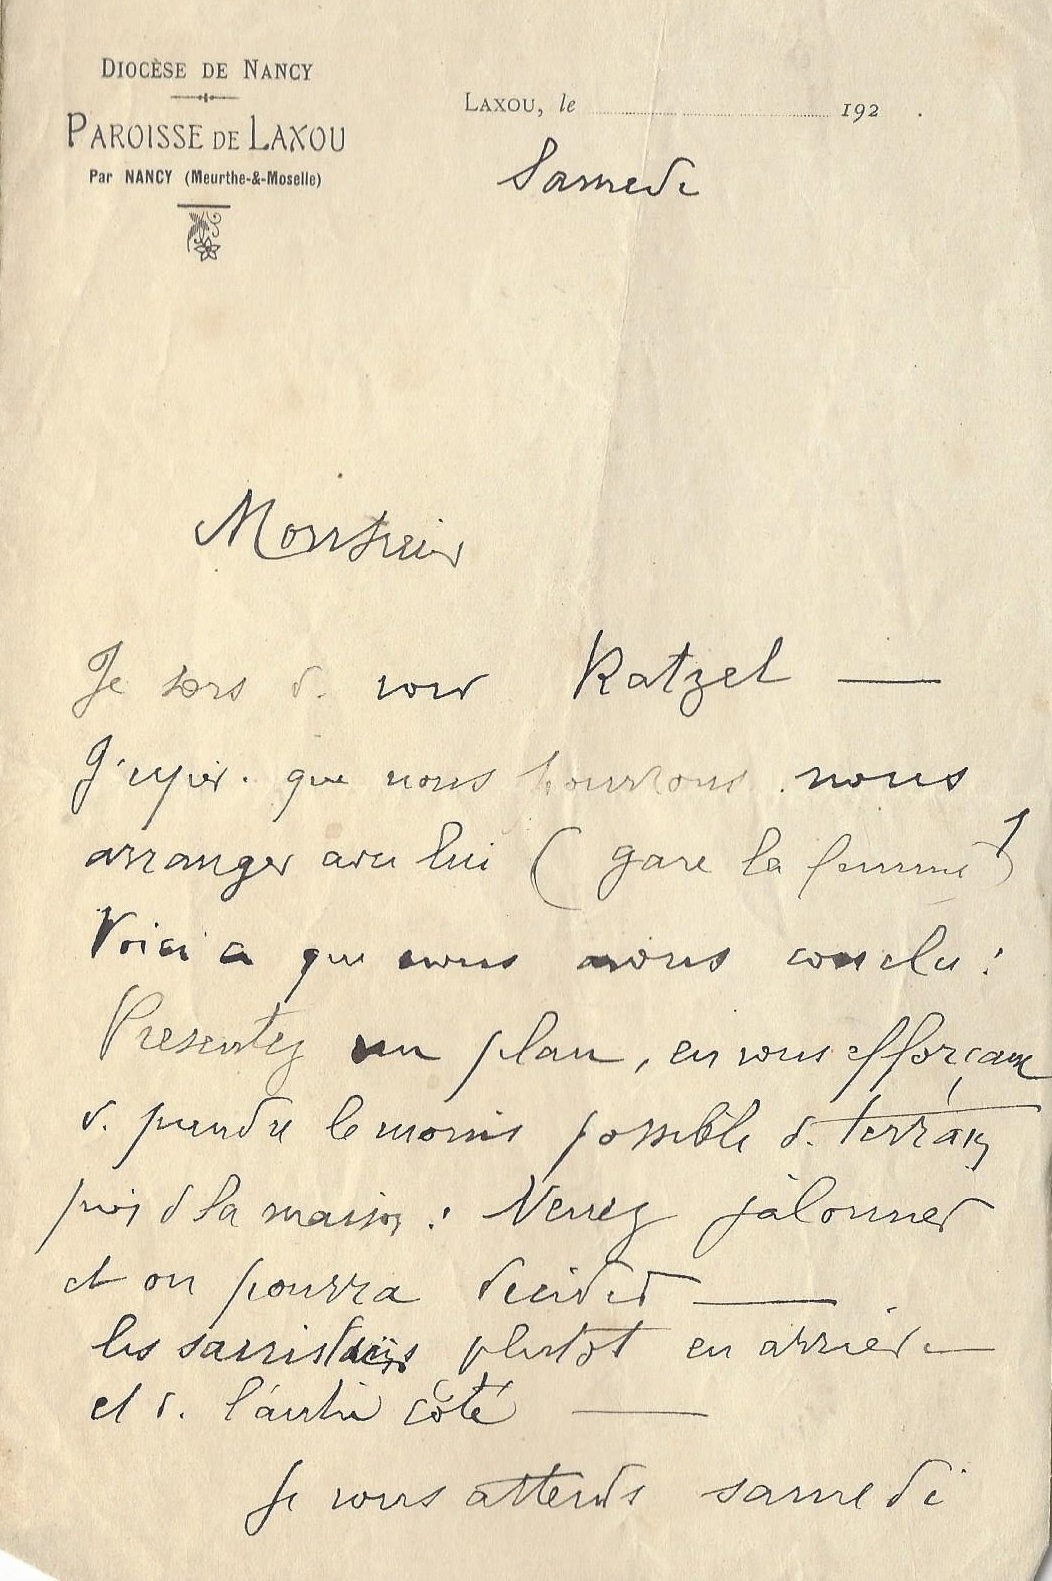 DIOCÈSE DE NANCY
PAROISSE DE LAXOU
Par NANCY (Meurthe-&-Moselle)
LAXOU, le 192 .
Samedi
Monsieur
Je sors de voir Ratzel —
J'espère que nous pourrons nous
arranger avec lui (gare la femme!)
Voici ce que nous avons conclu :
Presentez un plan, en vous efforçant
de prendre le moins possible de terrain
près de la maison : Venez jalonner
et on pourra decider —
les sacristies plutôt en arrière —
et de l'autre côté —
Je vous attends samedi